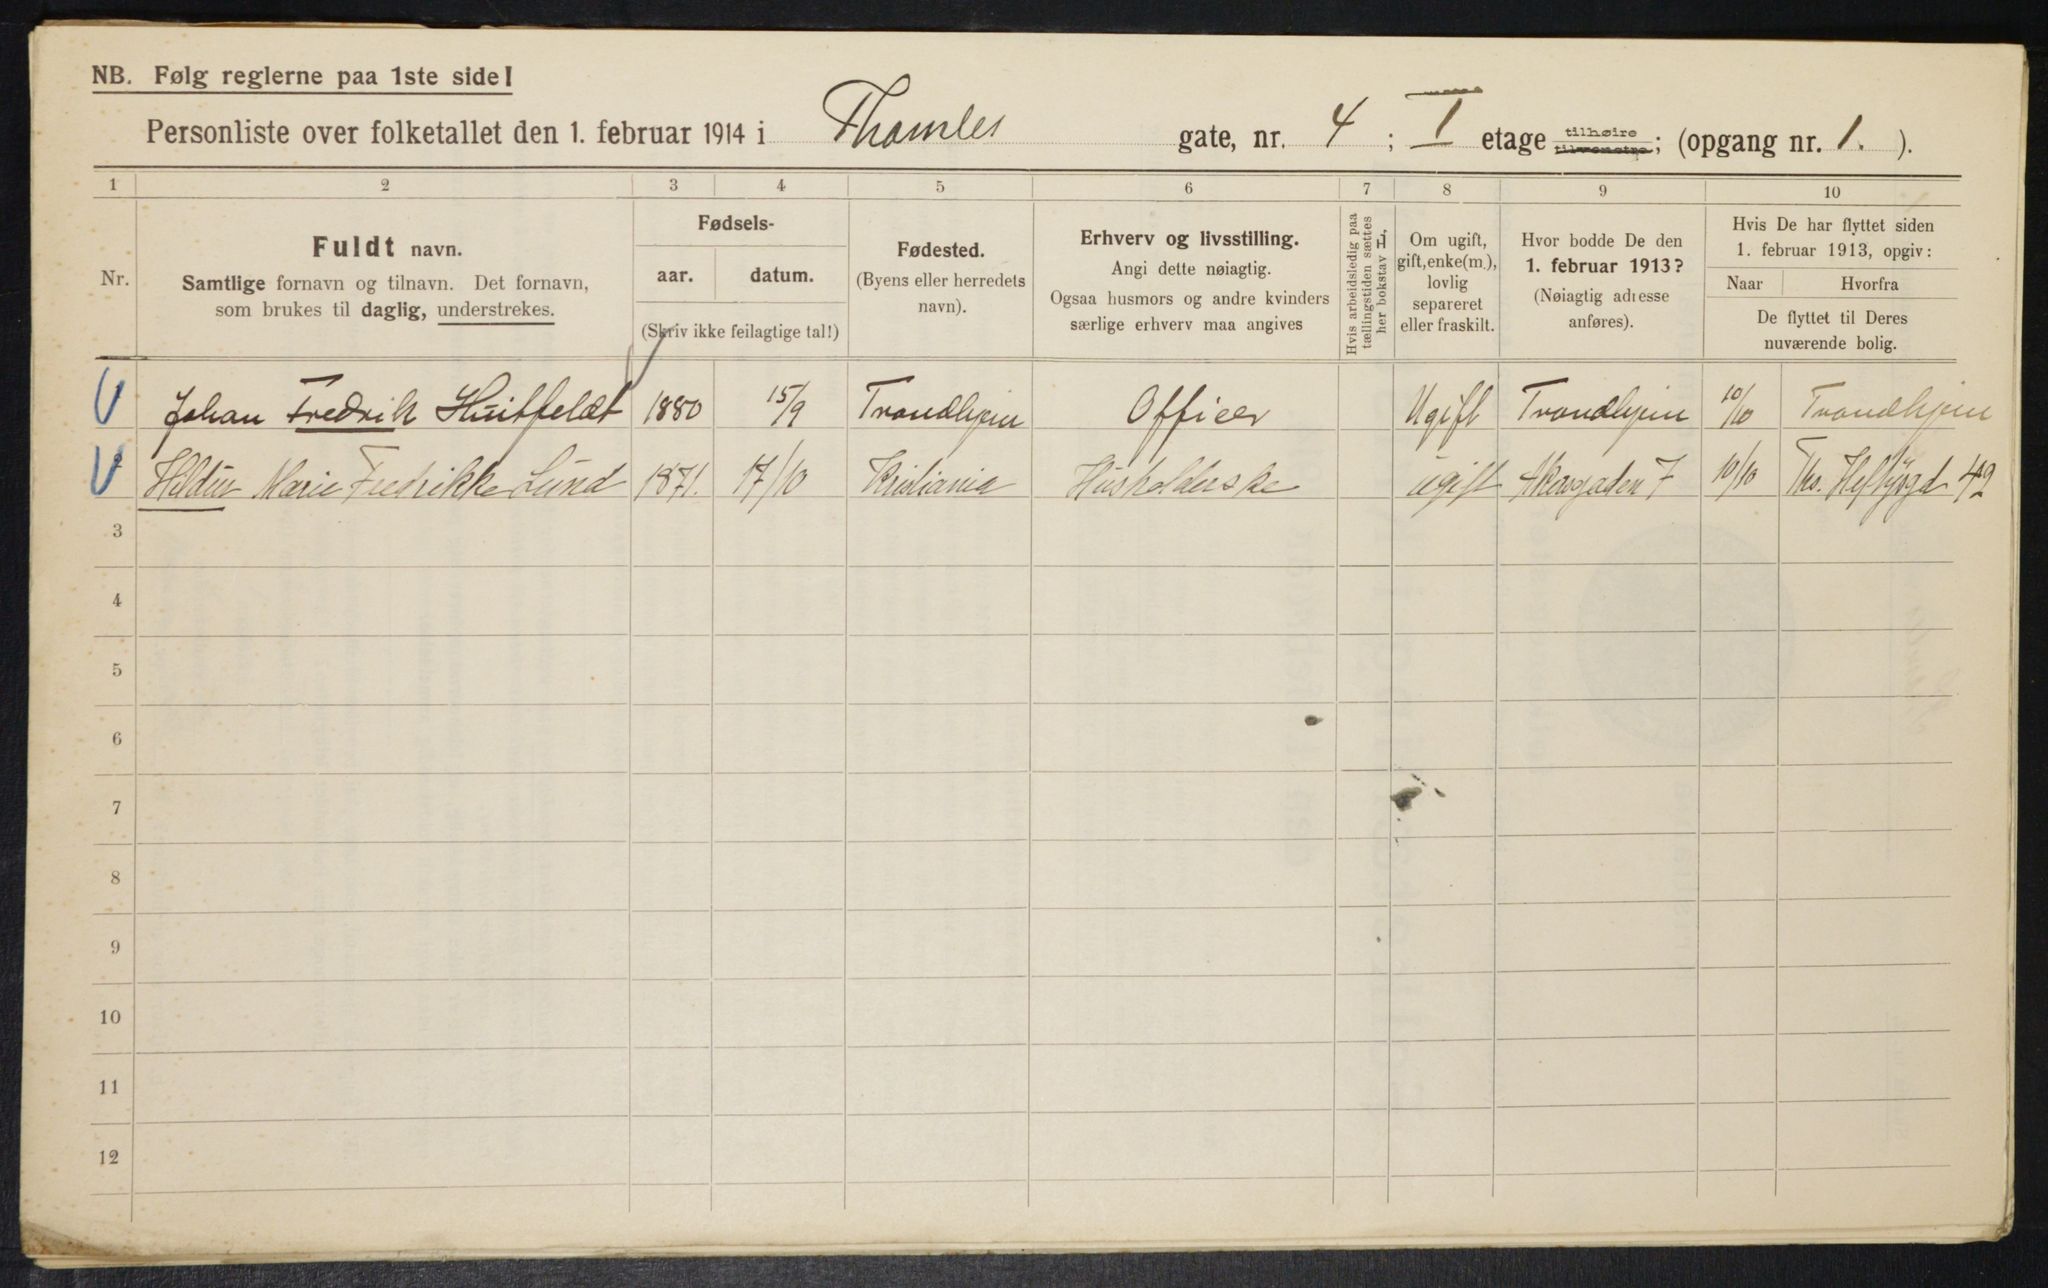 NB. Følg reglerne paa 1ste side!
Personliste over folketallet den 1. februar 1914 i Thomles gate, nr. 4 ; I etage tilhøire tilvenstre; (opgang nr. 1. ).
1 2 3 4 5 6 7 8 9 10
Nr.
Fuldt navn.
Samtlige fornavn og tilnavn. Det fornavn,
som brukes til daglig, understrekes.
Fødsels-
aar. datum.
(Skriv ikke feilagtige tal!)
Fødested.
(Byens eller herredets
navn).
Erhverv og livsstilling.
Angi dette nøiagtig.
Ogsaa husmors og andre kvinders
særlige erhverv maa angives
Hvis arbeidsledig paa
tællingstiden sættes
her bokstav L.
Om ugift,
gift, enke(m.),
lovlig
separeret
eller fraskilt.
Hvor bodde De den
1. februar 1913?
(Nøiagtig adresse
anføres).
Hvis De har flyttet siden
1. februar 1913, opgiv:
Naar Hvorfra
De flyttet til Deres
nuværende bolig.
Johan Fredrik Huitfeldt 1880 15/9 Trondhjem Officer Ugift Trondhjem 10/10 Trondhjem
2 Hildur Marie Fredrikke Lund 1871. 17/10 Kristiania Husholderske ugift Akersgaden 7 10/10 Ths. Heftyesgd 42
3
4
5
6
7
8
9
10
11
12